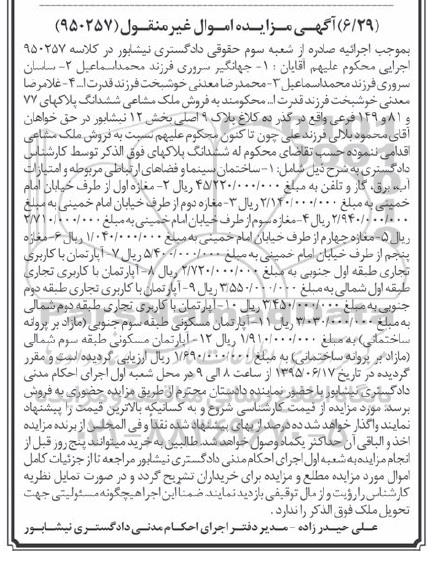 (۶/۲۹) آگهی مزایده اموال غیر منقول (۹۵۰۲۵۷)
بموجب اجرائیه صادره از شعبه سوم حقوقی دادگستری نیشابور در کلاسه ۹۵۰۲۵۷
اجرایی محکوم علیهم آقایان : ۱- جهانگیر سروری فرزند محمداسماعیل ۲- ساسان
سروری فرزند محمداسماعیل ۳- محمدرضا معدنی خوشبخت فرزند قدرت ا... ۴- غلامرضا
معدنی خوشبخت فرزند قدرت ا... محکومند به فروش ملک مشاعی ششدانگ پلاکهای ۷۷
و ۸۱ و ۱۴۹ فرعی واقع در کدر ده کلاغ پلاک ۹ اصلی بخش ۱۲ نیشابور در حق خواهان
آقای محمود بلالی فرزند علی چون تا کنون محکوم علیهم نسبت به فروش ملک مشاعی
اقدامی ننموده حسب تقاضای محکوم له ششدانگ پلاکهای فوق الذکر توسط کارشناس
دادگستری به شرح ذیل شامل: ۱- ساختمان سینما و فضاهای ارتباطی مربوطه و امتیازات
آب، برق، گاز و تلفن به مبلغ ۴۵/۲۲۰/۰۰۰/۰۰۰ ریال ۲- مغازه اول از طرف خیابان امام
خمینی به مبلغ ۲/۱۴۰/۰۰۰/۰۰۰ ریال ۳- مغازه دوم از طرف خیابان امام خمینی به مبلغ
۲/۹۴۰/۰۰۰/۰۰۰ ریال ۴- مغازه سوم از طرف خیابان امام خمینی به مبلغ ۲/۷۱۰/۰۰۰/۰۰۰
ریال ۵- مغازه چهارم از طرف خیابان امام خمینی به مبلغ ۱/۰۴۰/۰۰۰/۰۰۰ ریال ۶- مغازه
پنجم از طرف خیابان امام خمینی به مبلغ ۵/۴۰۰/۰۰۰/۰۰۰ ریال ۷- آپارتمان با کاربری
تجاری طبقه اول جنوبی به مبلغ ۲/۷۲۰/۰۰۰/۰۰۰ ریال ۸- آپارتمان با کاربری تجاری
طبقه اول شمالی به مبلغ ۳/۵۵۰/۰۰۰/۰۰۰ ریال ۹- آپارتمان با کاربری تجاری طبقه دوم
جنوبی به مبلغ ۳/۴۵۰/۰۰۰/۰۰۰ ریال ۱۰- آپارتمان با کاربری تجاری طبقه دوم شمالی
به مبلغ ۳/۰۳۰/۰۰۰/۰۰۰ ریال ۱۱- آپارتمان مسکونی طبقه سوم جنوبی (مازاد بر پروانه
ساختمانی) به مبلغ ۱/۹۱۰/۰۰۰/۰۰۰ ریال ۱۲- آپارتمان مسکونی طبقه سوم شمالی
(مازاد بر پروانه ساختمانی) به مبلغ ۱/۶۹۰/۰۰۰/۰۰۰ ریال ارزیابی گردیده است و مقرر
گردیده در تاریخ ۱۳۹۵/۰۶/۱۷ از ساعت ۸ الی ۹ در محل شعبه اول اجرای احکام مدنی
دادگستری نیشابور با حضور نماینده دادستان محترم از طریق مزایده حضوری به فروش
برسد. مورد مزایده از قیمت کارشناسی شروع و به کسانیکه بالاترین قیمت را پیشنهاد
نمایند واگذار خواهد شد ده درصد از بهای پیشنهاد شده نقدا و فی المجلس از برنده مزایده
اخذ و الباقی آن حداکثر یکماه وصول خواهد شد. طالبین به خرید میتوانند پنج روز قبل از
انجام مزایده به شعبه اول اجرای احکام مدنی دادگستری نیشابور مراجعه تا از جزئیات کامل
اموال مورد مزایده مطلع و مزایده برای خریداران تشریح گردد و در صورت تمایل نظریه
کارشناس را رؤیت و از مال توقیفی بازدید نمایند. ضمنا این اجرا هیچگونه مسئولیتی جهت
تحویل ملک فوق الذکر را ندارد.
علی حیدرزاده - مدیر دفتر اجرای احکام مدنی دادگستری نیشابور